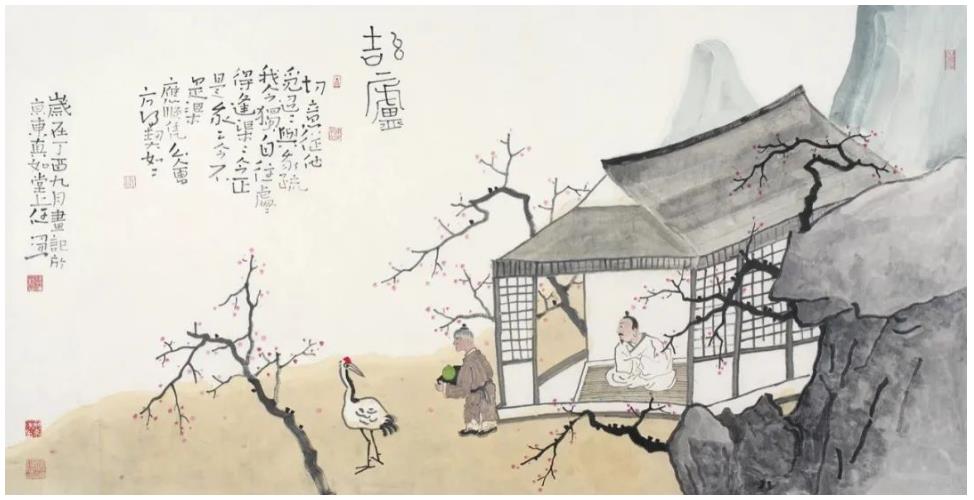 廬
切忌從他
覓迢〻與我疏
我今獨自往處〻
得逢渠〻今正
是我〻今不
是渠
應須恁么會
方得契如〻
歲在丁酉九月畫記於
京東真如堂上